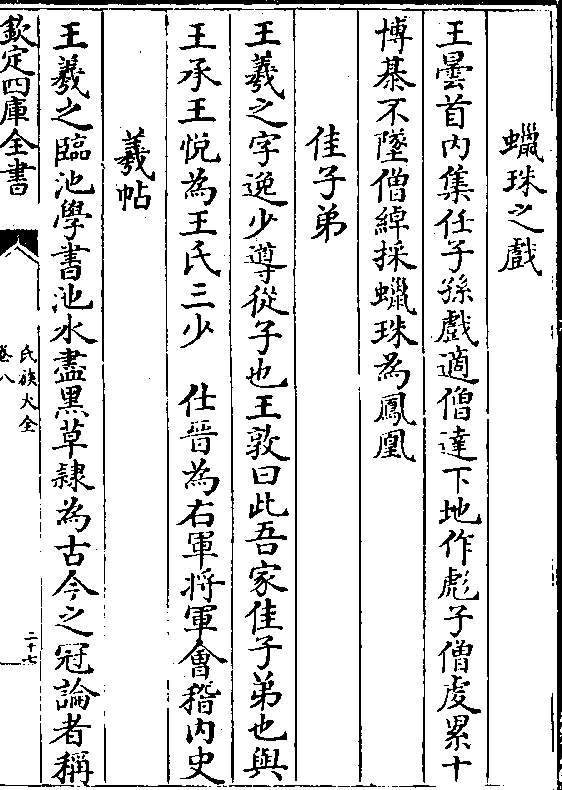 蠟珠之戲
王曇首内集任子孫戲適僧達下地作彪子僧䖍累十
博棊不墜僧綽採蠟珠為鳳凰
佳子弟
王羲之字逸少導從子也王敦曰此吾家佳子弟也與
王承王悅為王氏三少　仕晉為右軍將軍會稽内史
羲帖
王羲之臨池學書池水盡黒草隷為古今之冠論者稱
欽定四庫全書
氏族大全
卷八
二十七